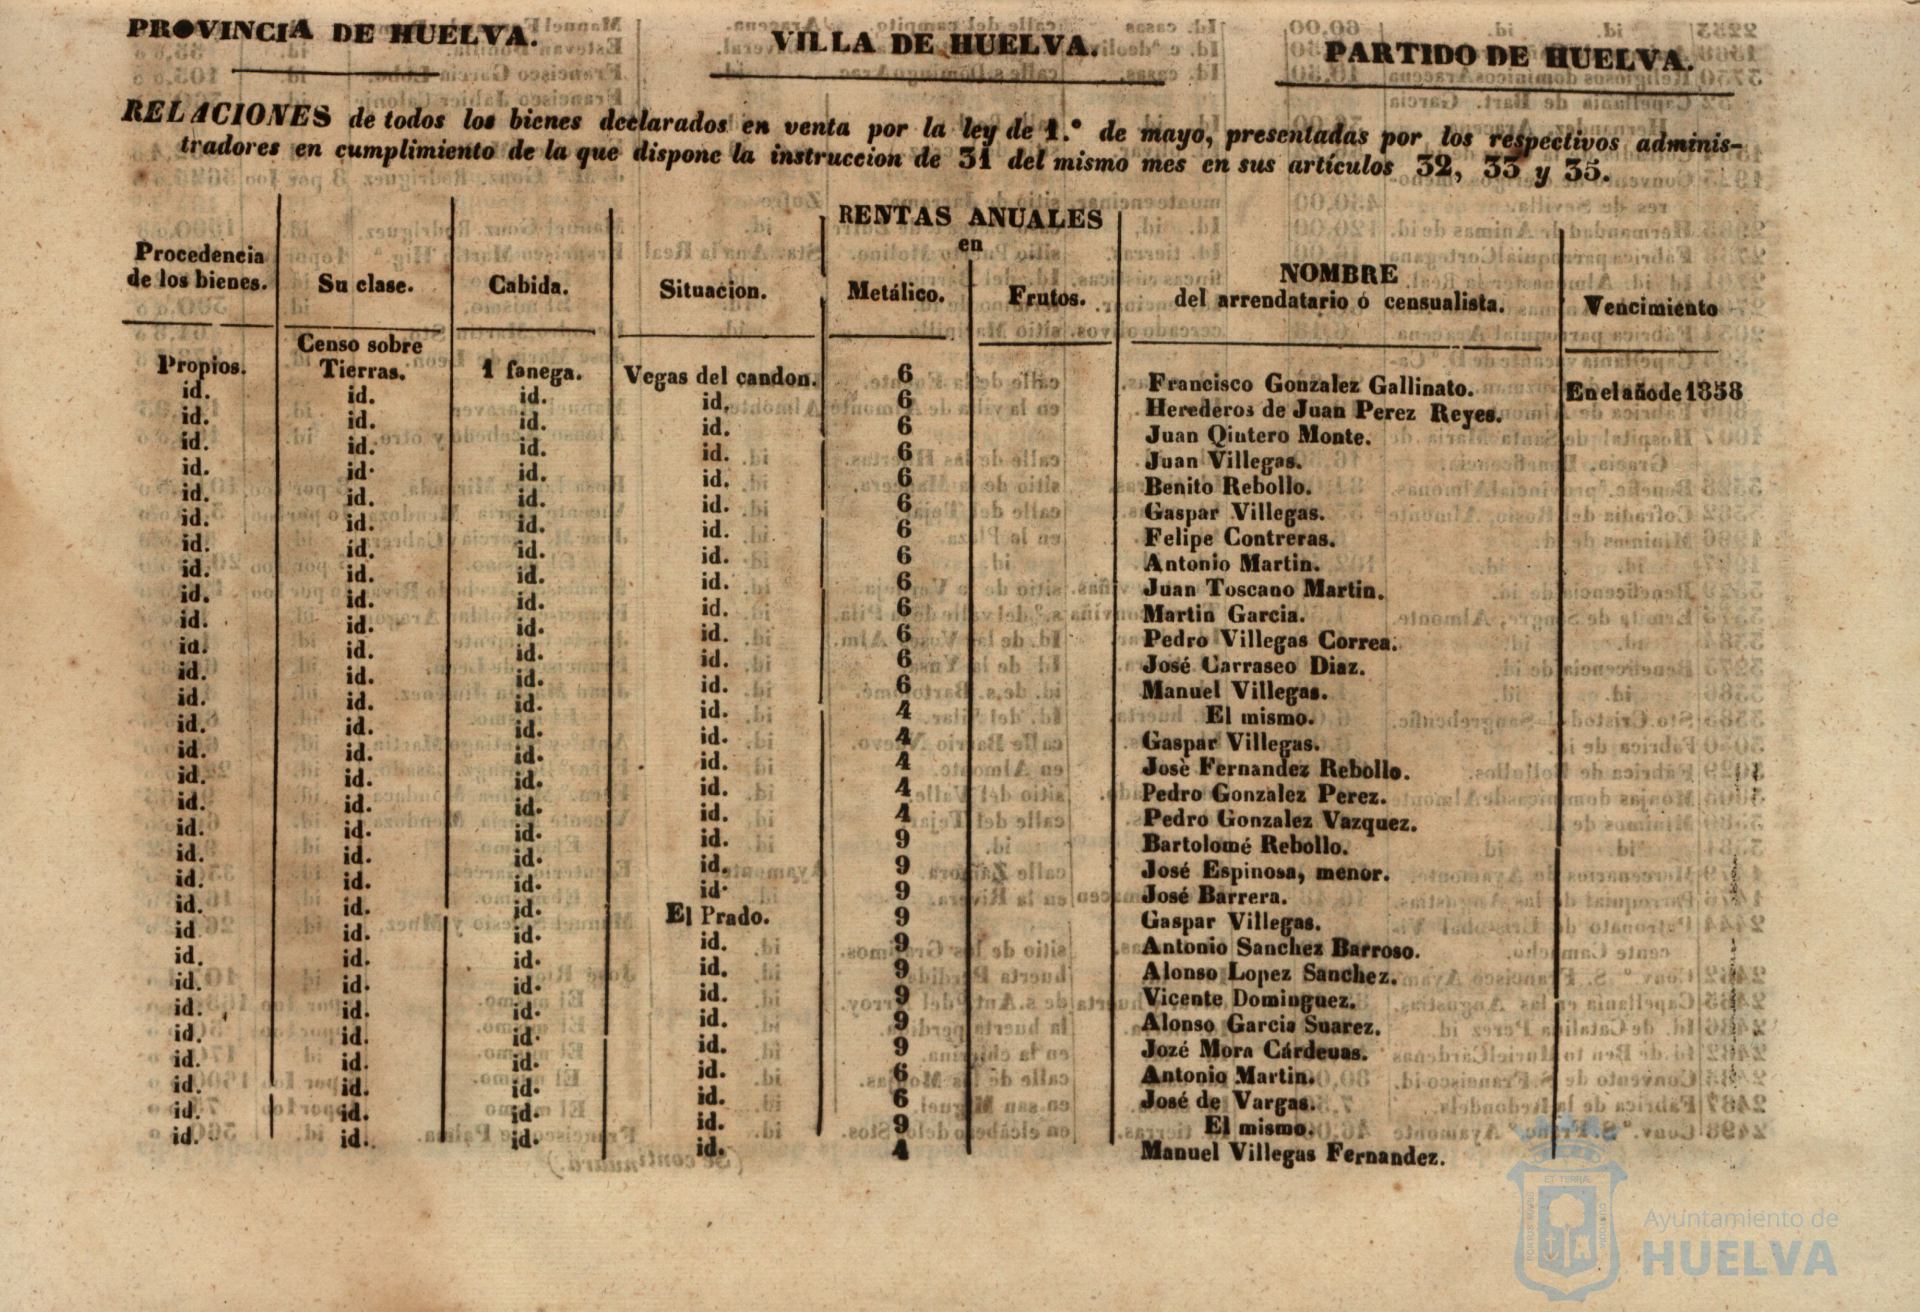 PROVINCIA DE HUELVA. VILLA DE HUELVA. PARTIDO DE HUELVA.
RELACIONES de todos los bienes declarados en venta por la ley de 1.º de mayo, presentadas por los respectivos adminis-
tradores en cumplimiento de la que dispone la instruccion de 31 del mismo mes en sus artículos 32, 33 y 35.
RENTAS ANUALES
en
Procedencia
de los bienes. Su clase. Cabida. Situacion. Metálico. Frutos. NOMBRE
del arrendatario ó censualista. Vencimiento
Censo sobre
Propios. Tierras. 1 fanega. Vegas del candon. 6 Francisco Gonzalez Gallinato. En el año de 1858
id. id. id. id. 6 Herederos de Juan Perez Reyes.
id. id. id. id. 6 Juan Qintero Monte.
id. id. id. id. 6 Juan Villegas.
id. id. id. id. 6 Benito Rebollo.
id. id. id. id. 6 Gaspar Villegas.
id. id. id. id. 6 Felipe Contreras.
id. id. id. id. 6 Antonio Martin.
id. id. id. id. 6 Juan Toscano Martin.
id. id. id. id. 6 Martin Garcia.
id. id. id. id. 6 Pedro Villegas Correa.
id. id. id. id. 6 José Carrasco Diaz.
id. id. id. id. 6 Manuel Villegas.
id. id. id. id. 4 El mismo.
id. id. id. id. 4 Gaspar Villegas.
id. id. id. id. 4 Josè Fernandez Rebollo.
id. id. id. id. 4 Pedro Gonzalez Perez.
id. id. id. id. 4 Pedro Gonzalez Vazquez.
id. id. id. id. 9 Bartolomé Rebollo.
id. id. id. id. 9 José Espinosa, menor.
id. id. id. id. 9 José Barrera.
id. id. id. El Prado. 9 Gaspar Villegas.
id id. id. id. 9 Antonio Sanchez Barroso.
id. id. id. id. 9 Alonso Lopez Sanchez.
id. id. id. id. 9 Vicente Dominguez.
id. id. id. id. 9 Alonso Garcia Suarez.
id. id. id. id. 9 Jozé Mora Cárdenas.
id. id. id. id. 6 Antonio Martin.
id. id. id. id. 6 José de Vargas.
id. id. id. id. 9 El mismo.
id. id. id. id. 4 Manuel Villegas Fernandez.
Ayuntamiento de
HUELVA